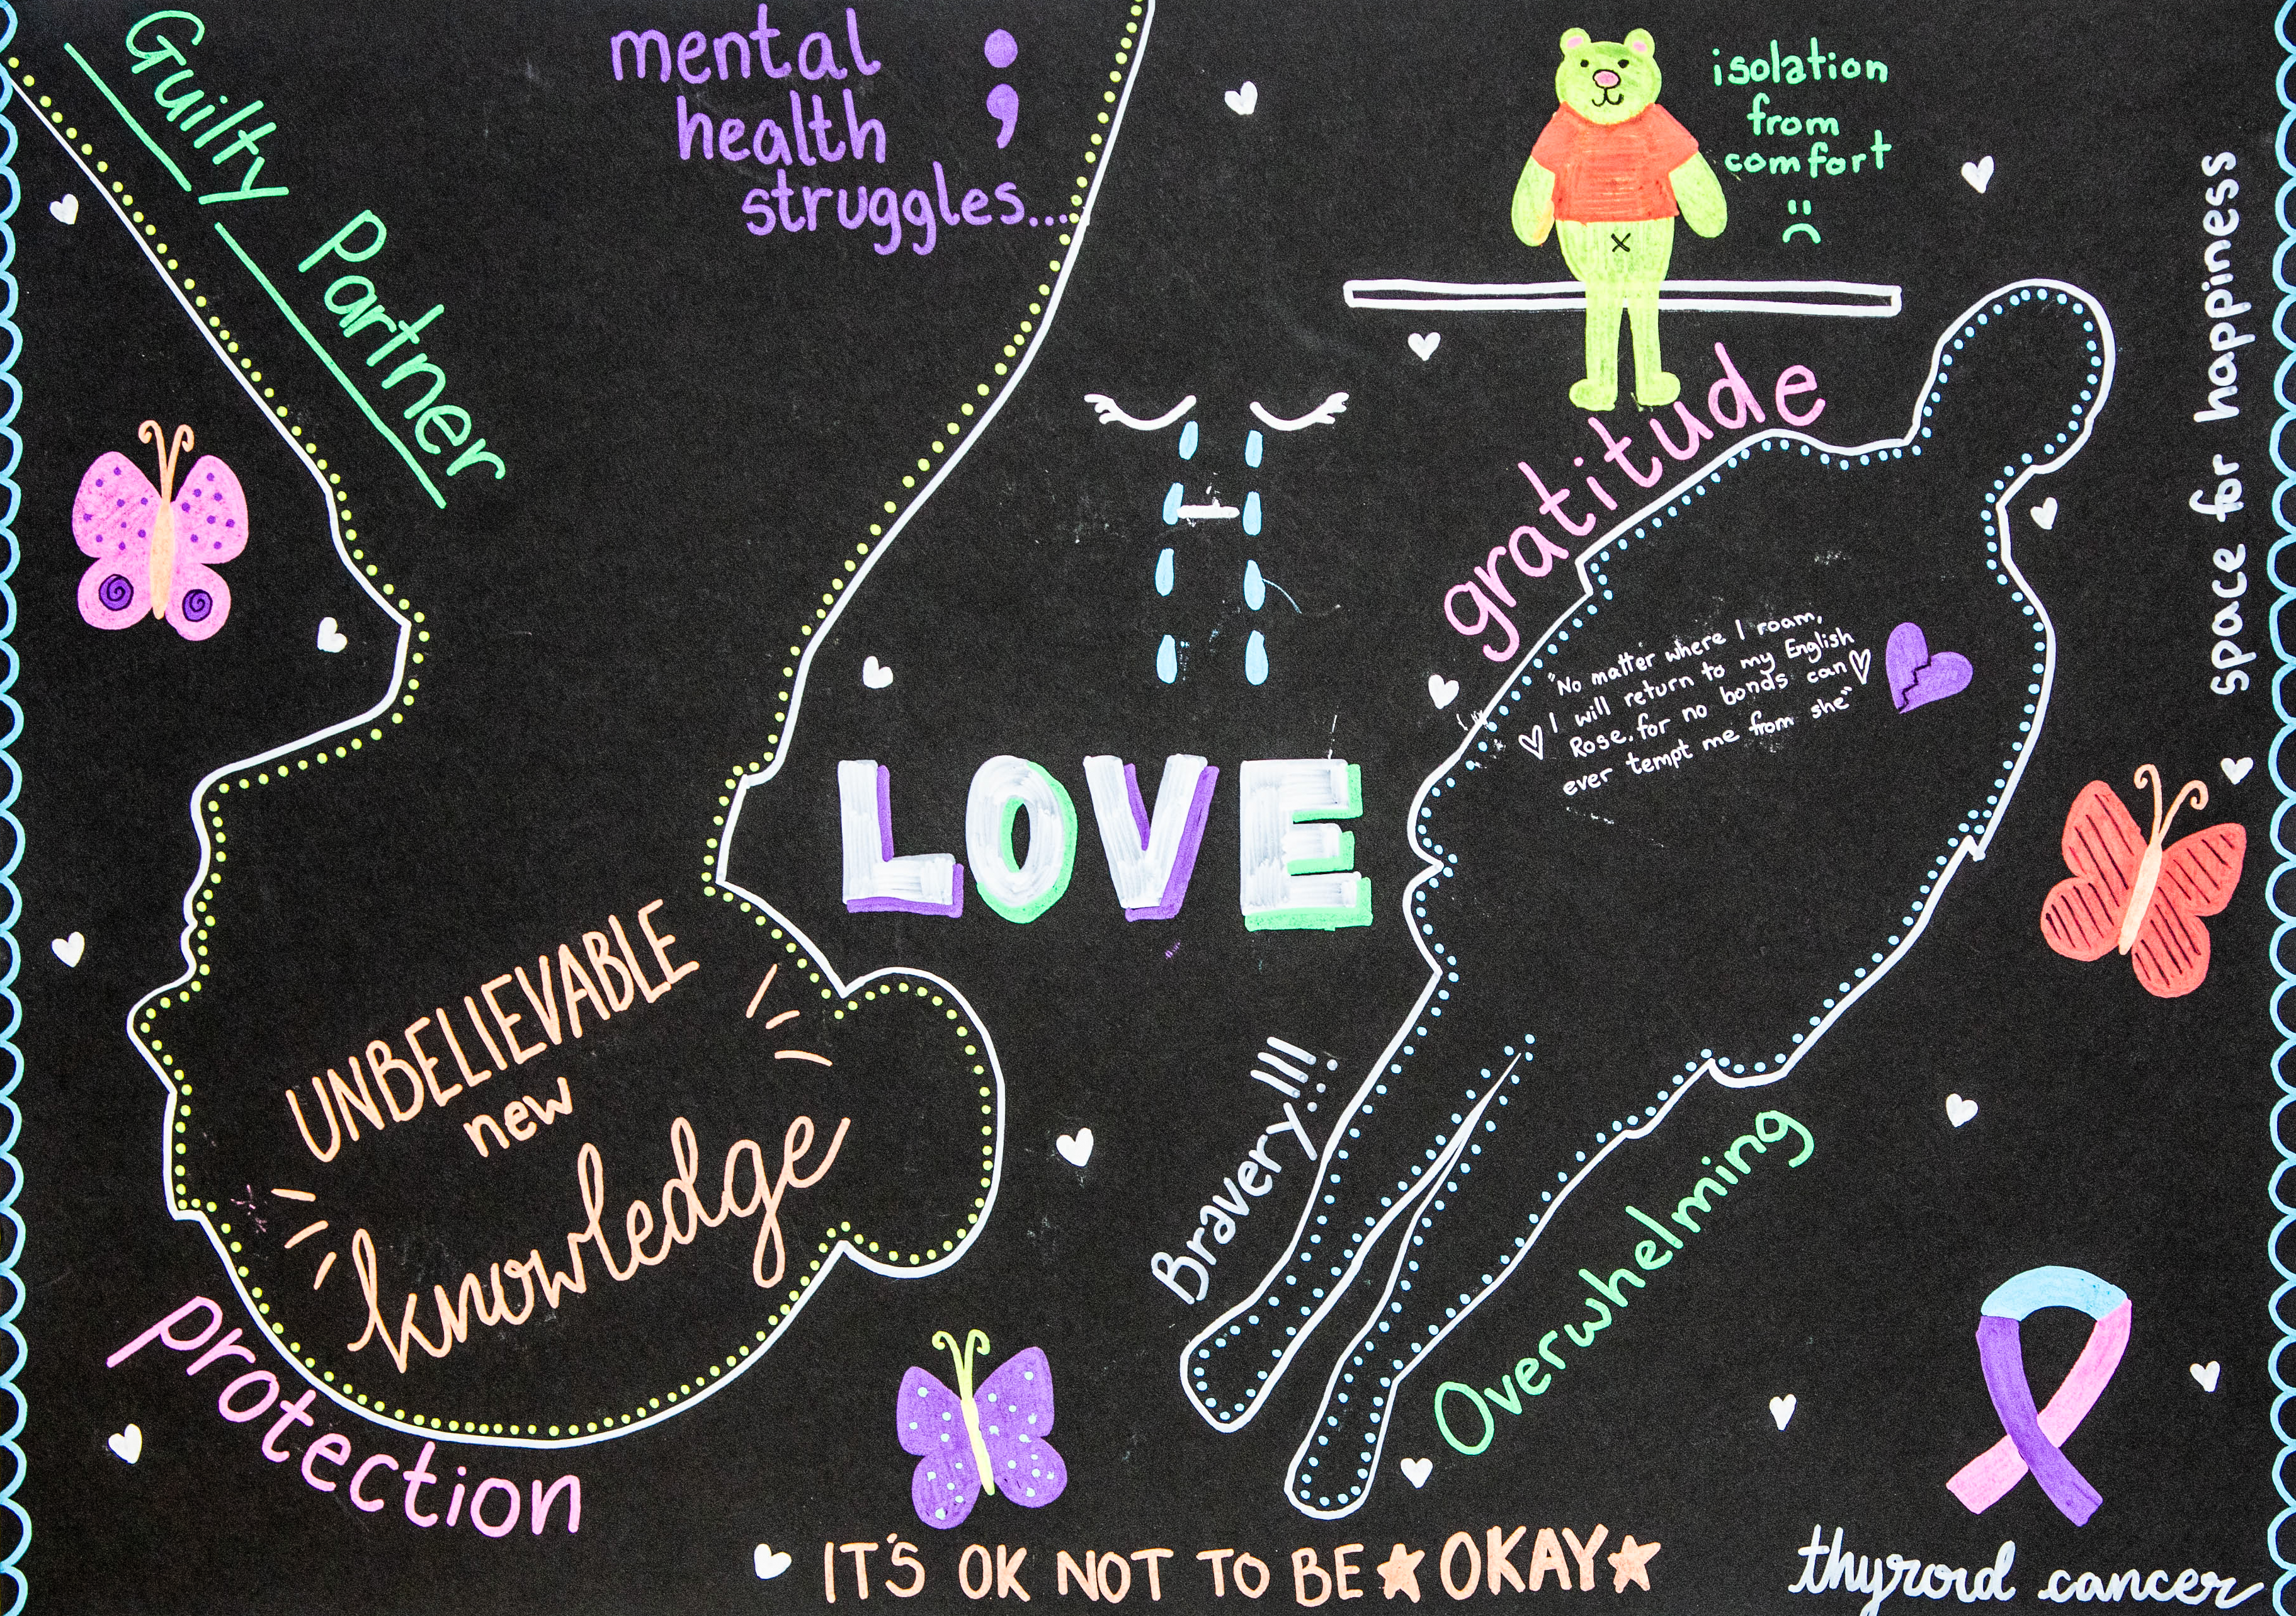 Guilty Partner
mental
health
struggles...
;
isolation
from
comfort
gratitude
space for happiness
"No matter where I roam,
I will return to my English
Rose. for no bonds can
ever tempt me from she"
LOVE
UNBELIEVABLE
new
knowledge
Bravery!!!
Overwhelming
protection
IT'S OK NOT TO BE OKAY
thyroid cancer